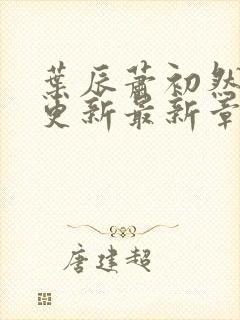 葉辰蕭初然
更新最新章
唐建超